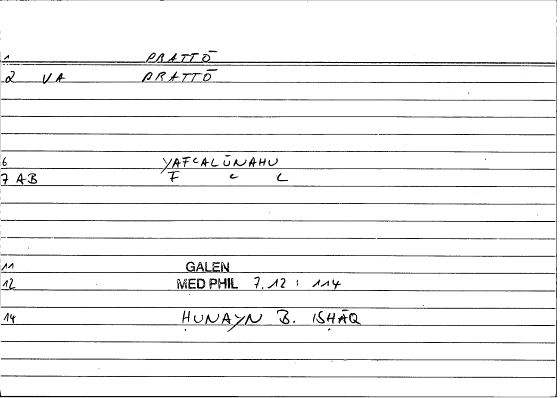 1 PRATTŌ
2 VA PRATTŌ
6 YAFꜤALŪNAHU
7 AB F Ꜥ L
11 GALEN
12 MED PHIL 7.12 : 114
14 ḤUNAYN B. ISḤĀQ